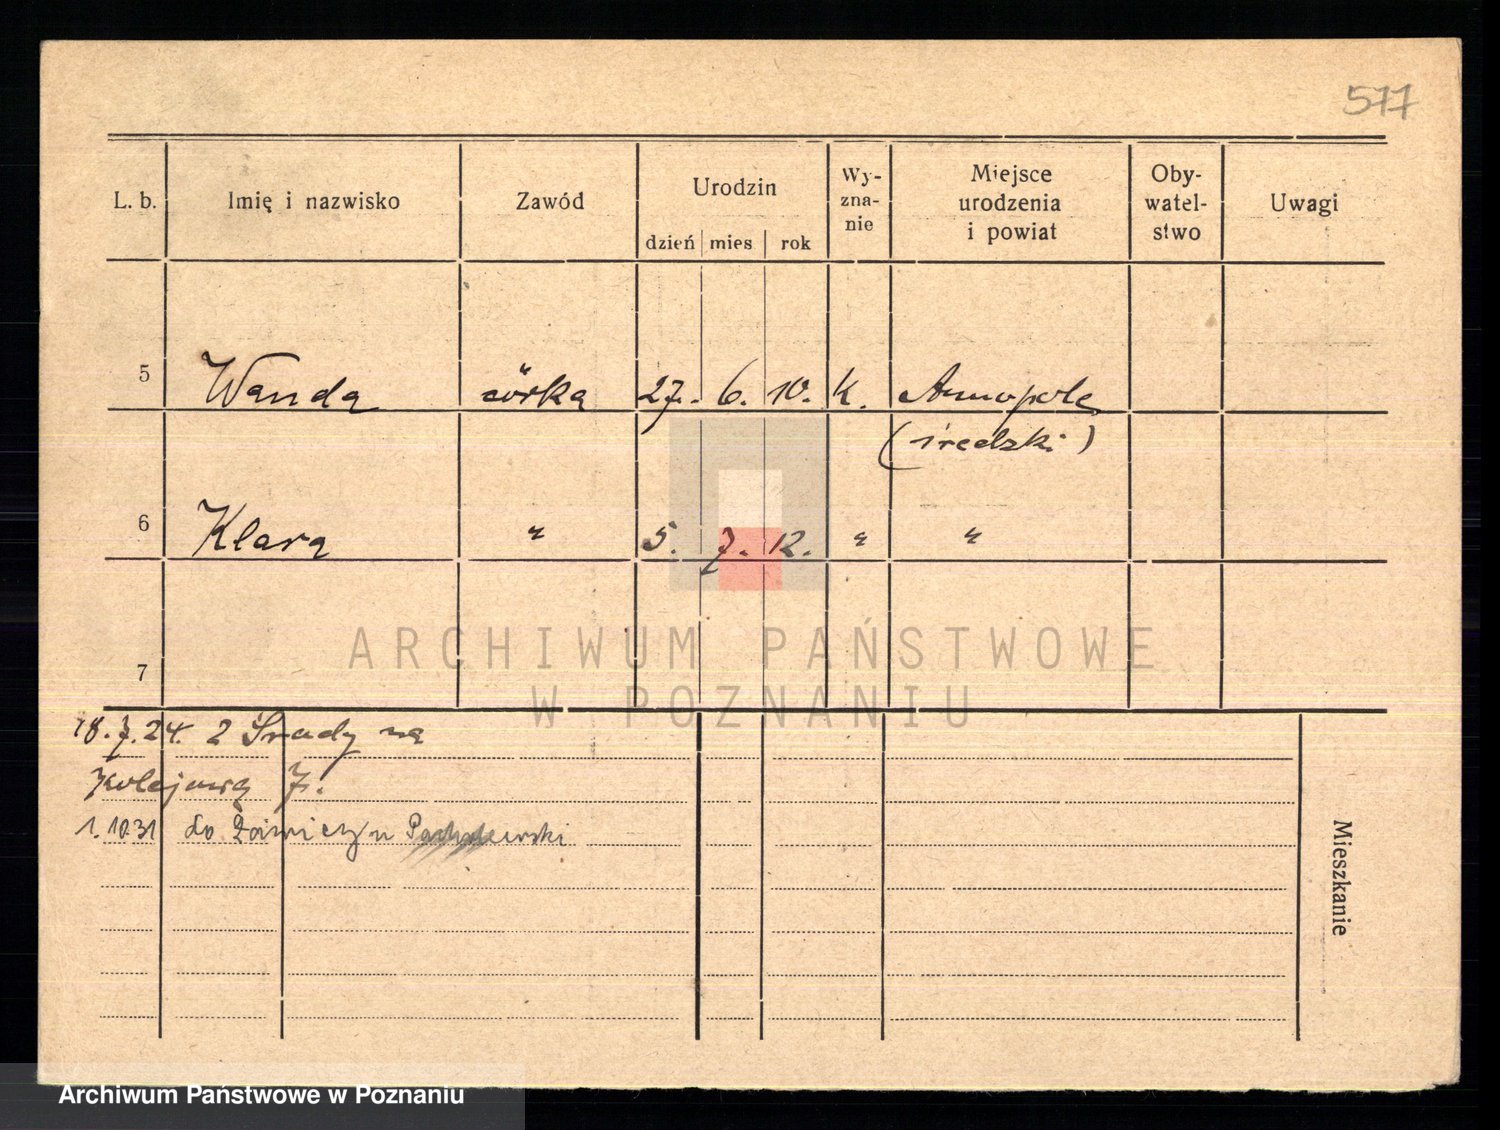 577
L. b. Imię i nazwisko Zawód Urodzin Wy-zna-nie Miejsce urodzenia i powiat Oby-watel-stwo Uwagi
dzień mies rok
5 Wanda córka 27. 6. 10. K. Annopole
(średzki)
6 Klara " 5. 7. 12. " "
ARCHIWUM PAŃSTWOWE
7
W POZNANIU
18.7.24. z Środy na
Kolejową 7.
1.10.31 do
Mieszkanie
Archiwum Państwowe w Poznaniu